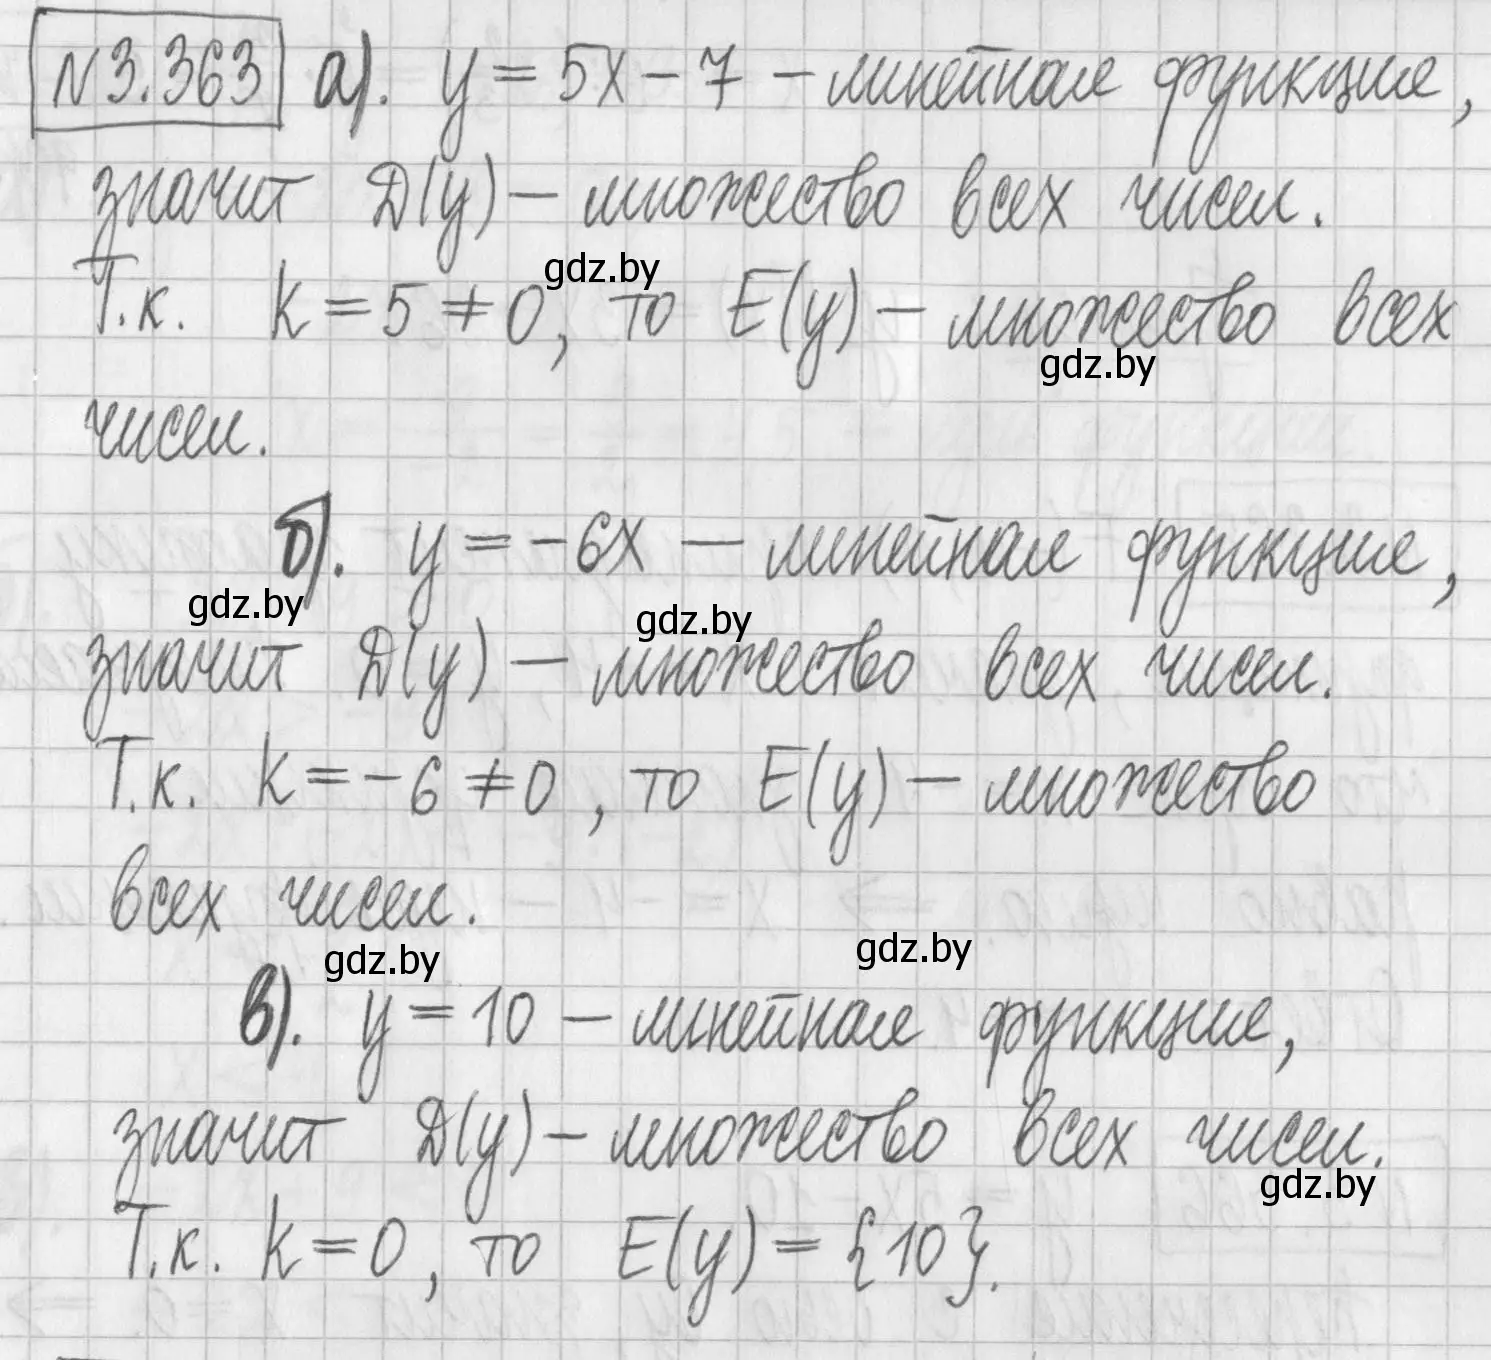 №3.363 а). y = 5x - 7 - линейная функция,
значит D(y) - множество всех чисел.
gdz.by
Т.к. k = 5 ≠ 0, то E(y) - множество всех
gdz.by
чисел.
б). y = -6x - линейная функция,
gdz.by
gdz.by
значит D(y) - множество всех чисел.
Т.к. k = -6 ≠ 0, то E(y) - множество
всех чисел.
gdz.by
gdz.by
в). y = 10 - линейная функция,
значит D(y) - множество всех чисел.
gdz.by
Т.к. k = 0, то E(y) = {10}.